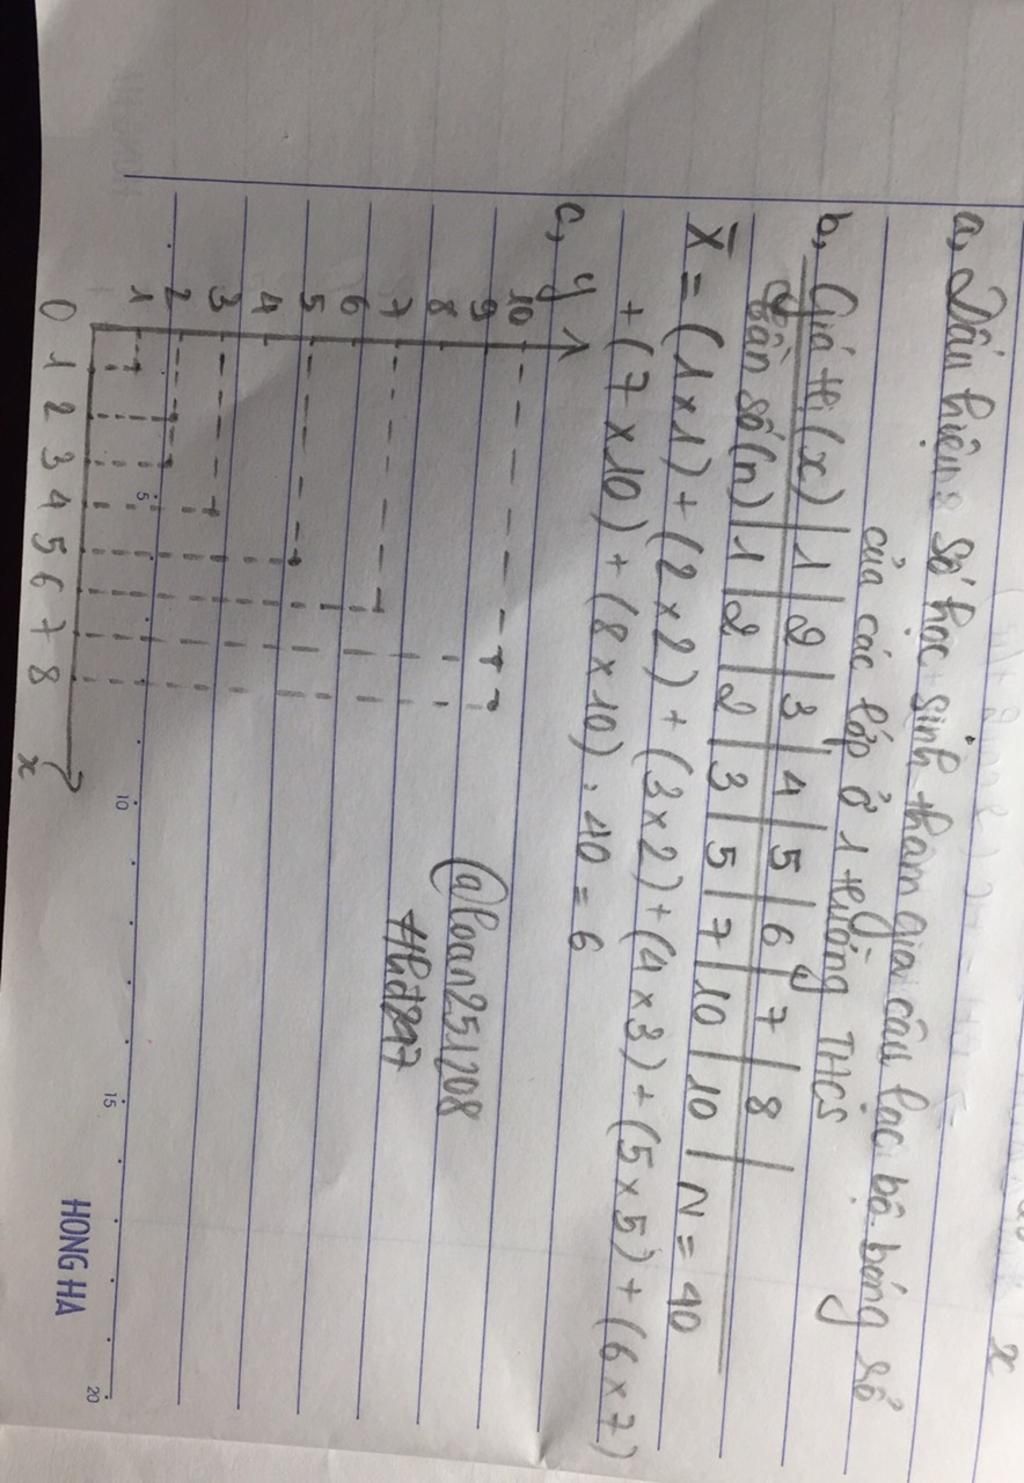 a, Dấu hiệu: số học sinh tham gia câu lạc bộ bóng số
của các lớp ở 1 trường THCS
b, Giá trị (x) | 1 | 2 | 3 | 4 | 5 | 6 | 7 | 8 |
Tần số (n) | 1 | 2 | 2 | 3 | 5 | 7 | 10 | 10 | N = 40
X̄ = (1x1) + (2x2) + (3x2) + (4x3) + (5x5) + (6x7)
+ (7x10) + (8x10) : 40 = 6
c,
y
10
9
8
7
6
5
4
3
2
1
0 1 2 3 4 5 6 7 8 x
@loan251208
5 10 15 20
HONG HA